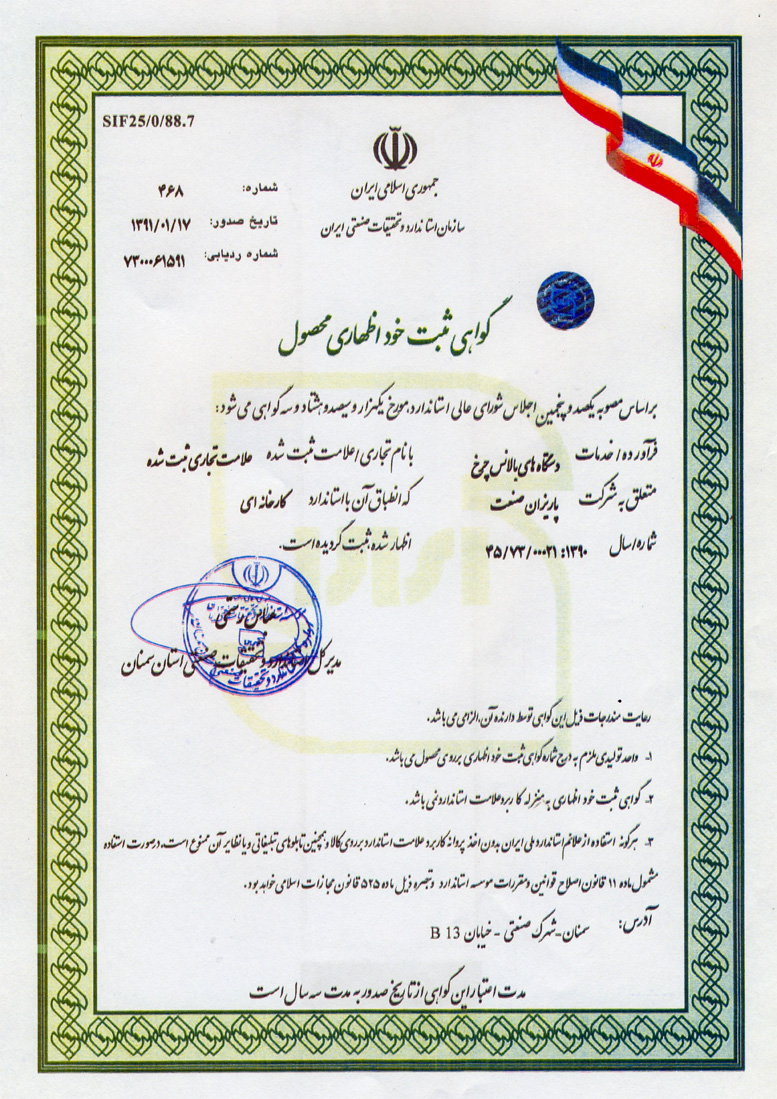 SIF25/0/88.7
جمهوری اسلامی ایران
سازمان استاندارد و تحقیقات صنعتی ایران
شماره: ۴۶۸
تاریخ صدور: ۱۳۹۱/۰۱/۱۷
شماره ردیابی: ۷۳۰۰۰۶۱۵۹۱
گواهی ثبت خود اظهاری محصول
براساس مصوبه یکصد و پنجمین اجلاس شورای عالی استاندارد، مورخ یکهزار و سیصد و هشتاد و سه گواهی می شود:
فرآورده/خدمات دستگاه های بالانس چرخ با نام تجاری/علامت ثبت شده علامت تجاری ثبت شده
متعلق به شرکت پاریزان صنعت که انطباق آن با استاندارد کارخانه ای
شماره/سال ۱۳۹۰: ۴۵/۷۳/۰۰۰۲۱ اظهار شده، ثبت گردیده است.
مدیر کل استاندارد و تحقیقات صنعتی استان سمنان
رعایت مندرجات ذیل این گواهی توسط دارنده آن، الزامی می باشد.
۱- واحد تولیدی ملزم به درج شماره گواهی ثبت خود اظهاری بر روی محصول می باشد.
۲- گواهی ثبت خود اظهاری به منزله کاربرد علامت استاندارد نمی باشد.
۳- هرگونه استفاده از علائم استاندارد ملی ایران بدون اخذ پروانه کاربرد علامت استاندارد بر روی کالا و همچنین تابلوهای تبلیغاتی و یا نظایر آن ممنوع است، در صورت استفاده
مشمول ماده ۱۱ قانون اصلاح قوانین و مقررات موسسه استاندارد و تبصره ذیل ماده ۵۲۵ قانون مجازات اسلامی خواهد بود.
آدرس: سمنان- شهرک صنعتی - خیابان B 13
مدت اعتبار این گواهی از تاریخ صدور به مدت سه سال است